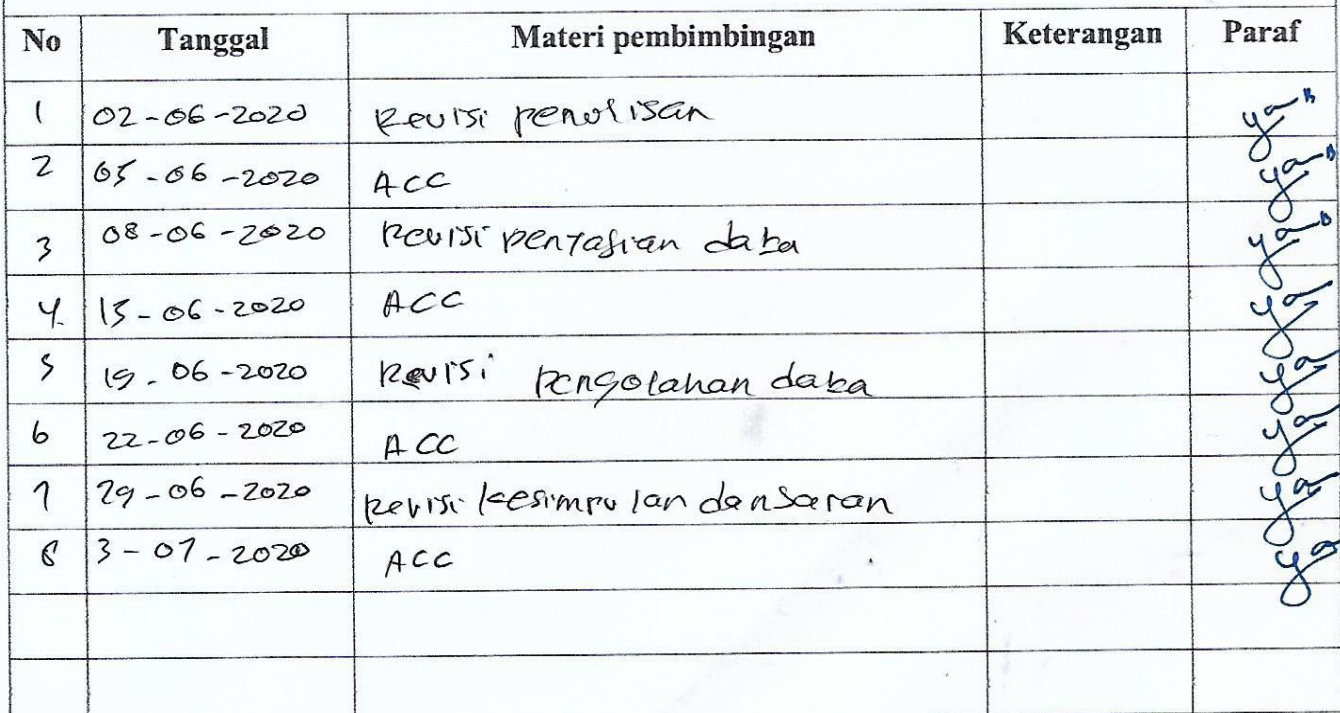 No Tanggal Materi pembimbingan Keterangan Paraf
1 02-06-2020 Revisi penulisan
2 05-06-2020 ACC
3 08-06-2020 Revisi penyajian data
4. 15-06-2020 ACC
5 19-06-2020 Revisi pengolahan data
6 22-06-2020 ACC
7 29-06-2020 Revisi kesimpulan dan saran
8 3-07-2020 ACC